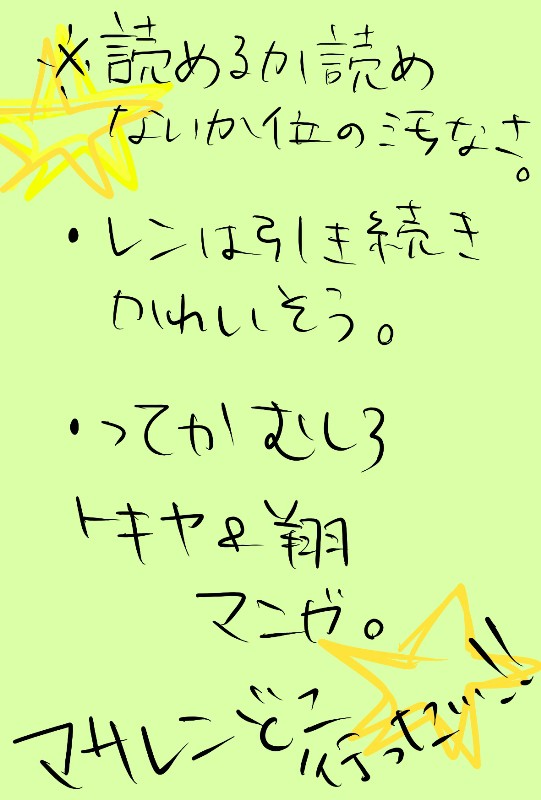 ※読めるか読め
ないか位の汚なさ。
・レンは引き続き
かわいそう。
・ってかむしろ
トキヤ&翔
マンガ。
マサレンどこ行った!!